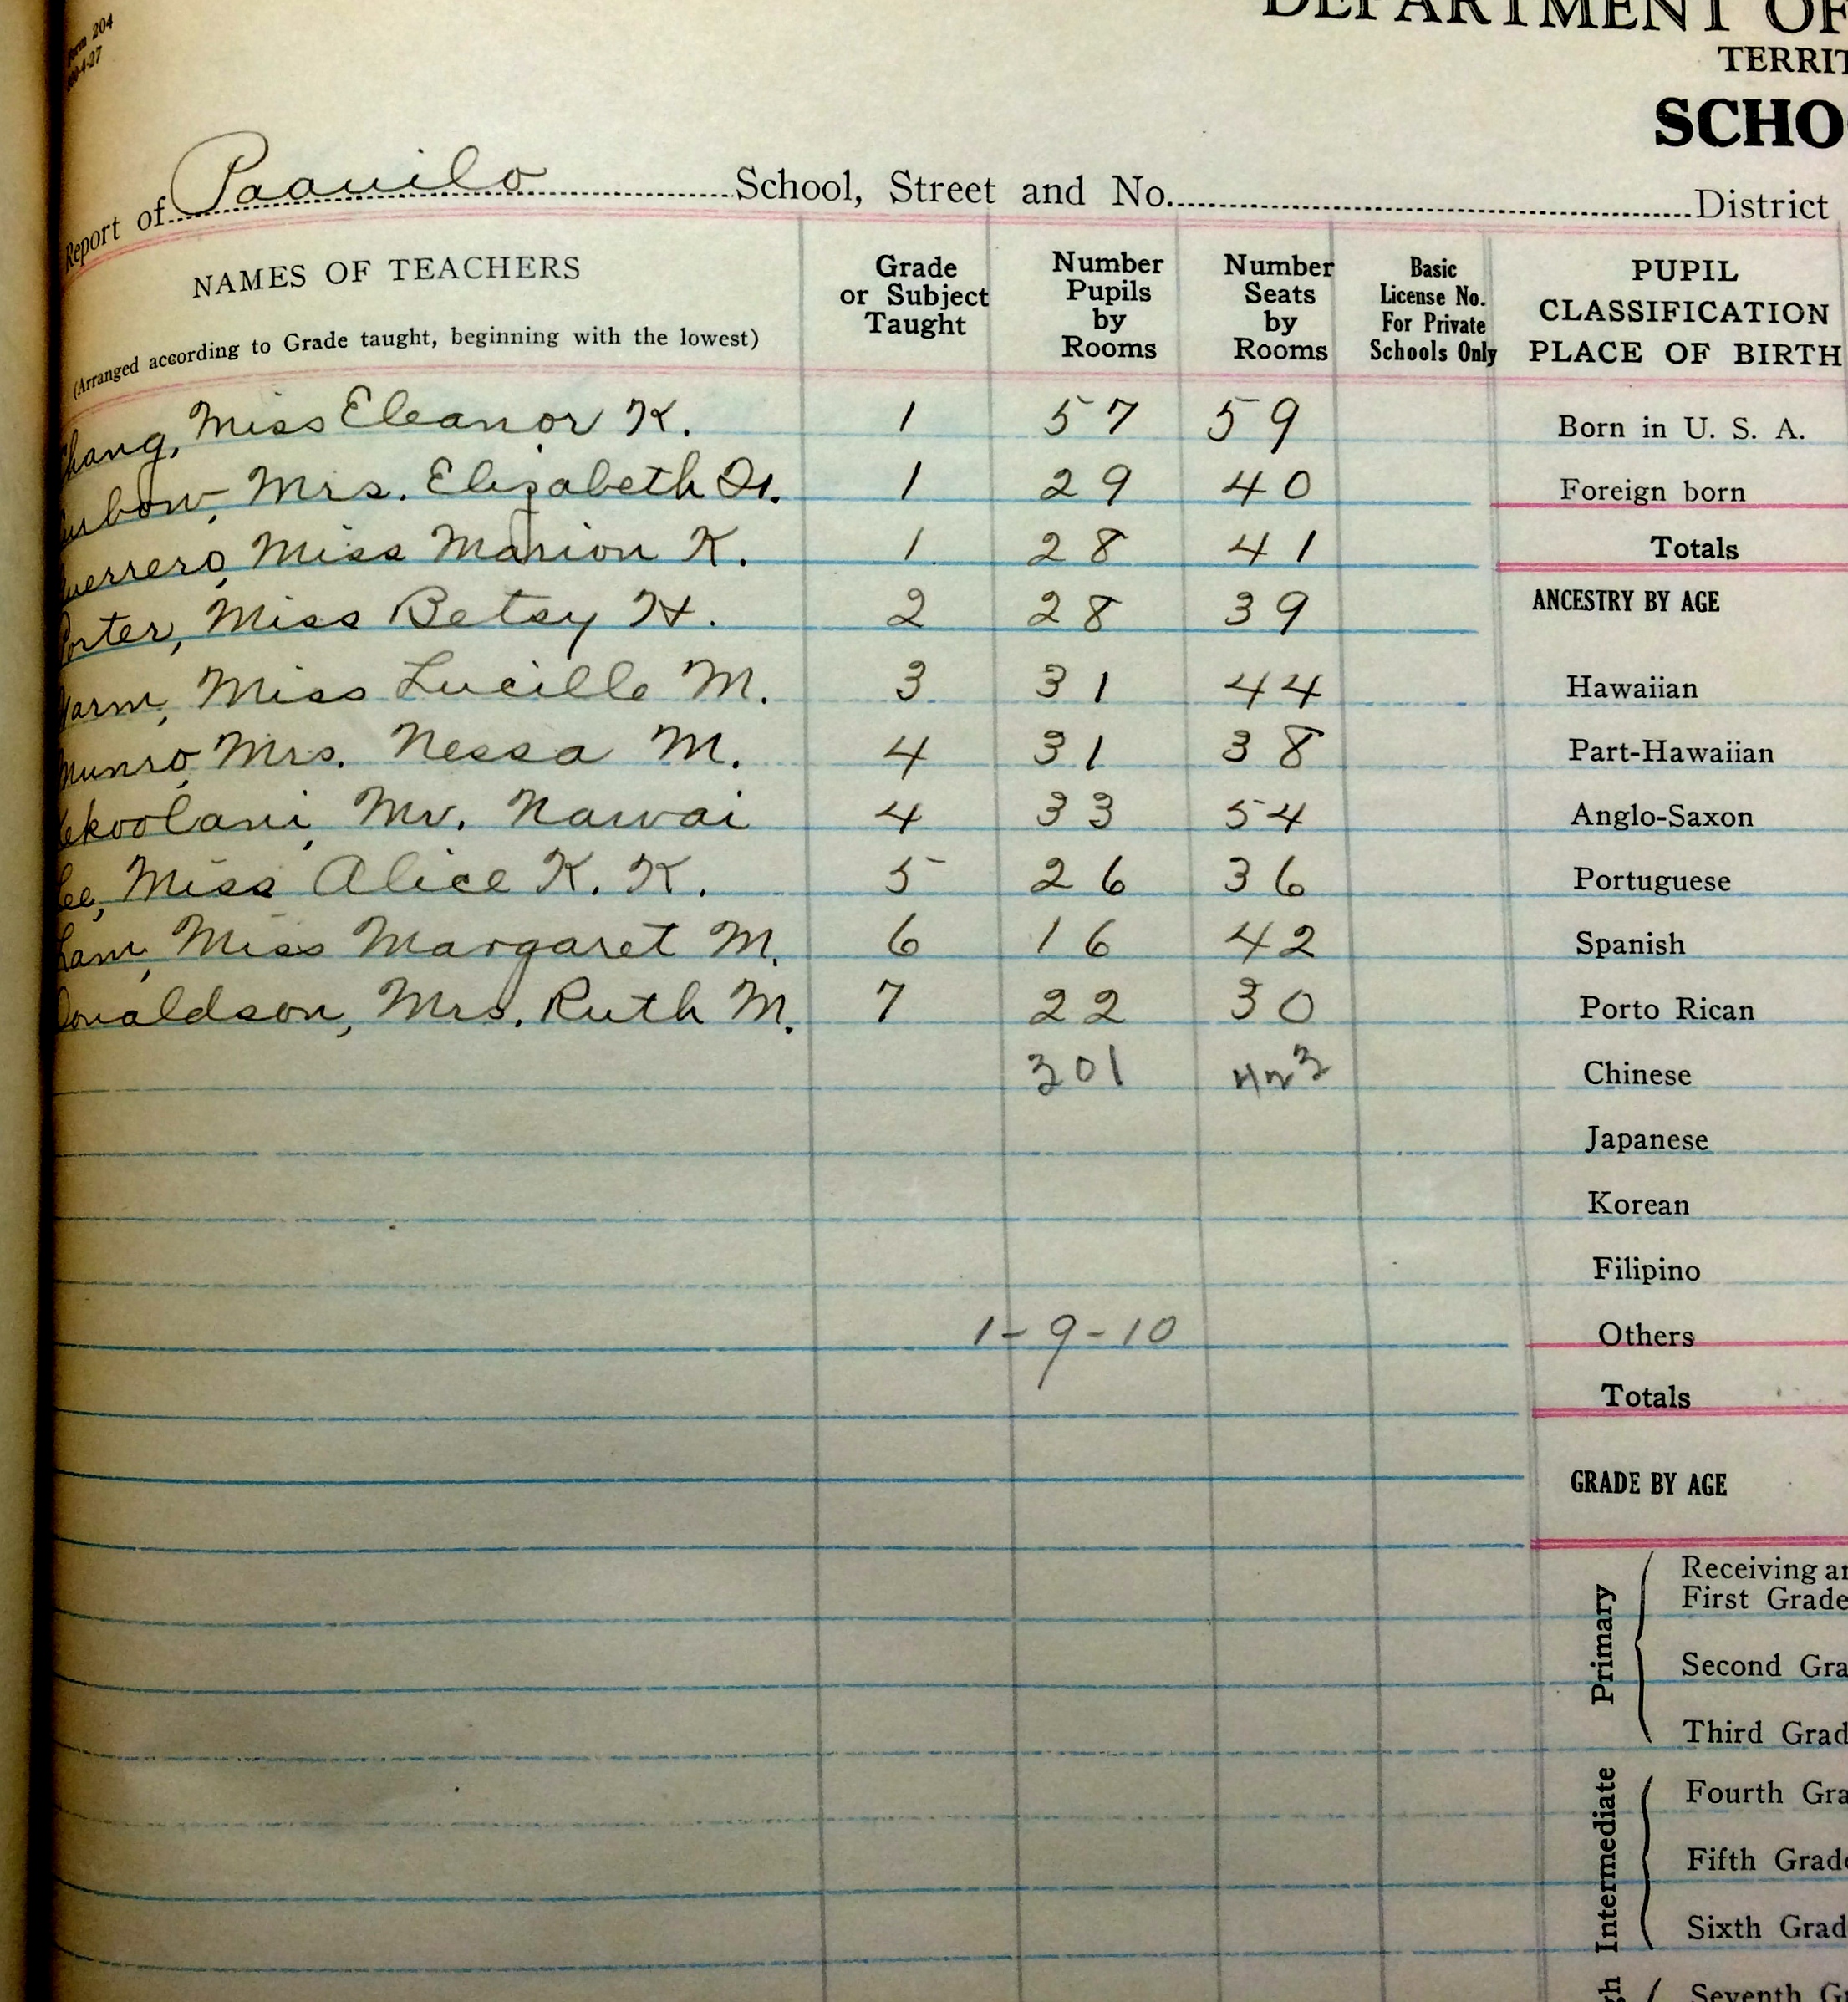 Form 204
DEPARTMENT OF
TERRIT
SCHO
Report of Paauilo School, Street and No. District
NAMES OF TEACHERS
(Arranged according to Grade taught, beginning with the lowest)
Grade or Subject Taught
Number Pupils by Rooms
Number Seats by Rooms
Basic License No. For Private Schools Only
PUPIL CLASSIFICATION PLACE OF BIRTH
Chang, Miss Eleanor K. 1 57 59 Born in U. S. A.
Mrs. Elizabeth 1 29 40 Foreign born
Guerrero, Miss Marion K. 1 28 41 Totals
Porter, Miss Betsy H. 2 28 39 ANCESTRY BY AGE
Miss Lucille M. 3 31 44 Hawaiian
Munro, Mrs. Nessa M. 4 31 38 Part-Hawaiian
Kekoolani, Mr. Nawai 4 33 54 Anglo-Saxon
Lee, Miss Alice K. K. 5 26 36 Portuguese
Lam, Miss Margaret M. 6 16 42 Spanish
Donaldson, Mrs. Ruth M. 7 22 30 Porto Rican
301 423 Chinese
Japanese
Korean
Filipino
1-9-10 Others
Totals
GRADE BY AGE
Primary
Receiving an
First Grade
Second Gra
Third Grad
Intermediate
Fourth Gra
Fifth Grade
Sixth Grad
gh
Seventh G